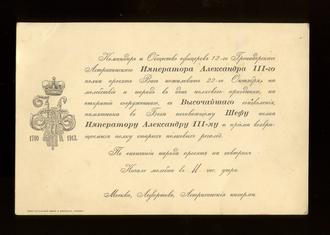 Командиръ и Общество офицеровъ 12-го Гренадерскаго
Астраханскаго Императора Александра III-го
полка просятъ Васъ пожаловать 22-го Октября, на
молебствіе и парадъ въ день полкового праздника, на
открытіе сооруженнаго, съ Высочайшаго соизволенія,
памятника въ Бозѣ почивающему Шефу полка
Императору Александру III-му и пріемъ возвра-
щаемыхъ полку старыхъ полковыхъ регалій.
По окончаніи парада просятъ на завтракъ
Начало молебна въ 11 час. утра.
Москва, Лефортово, Астраханскія казармы.
1700 1913.